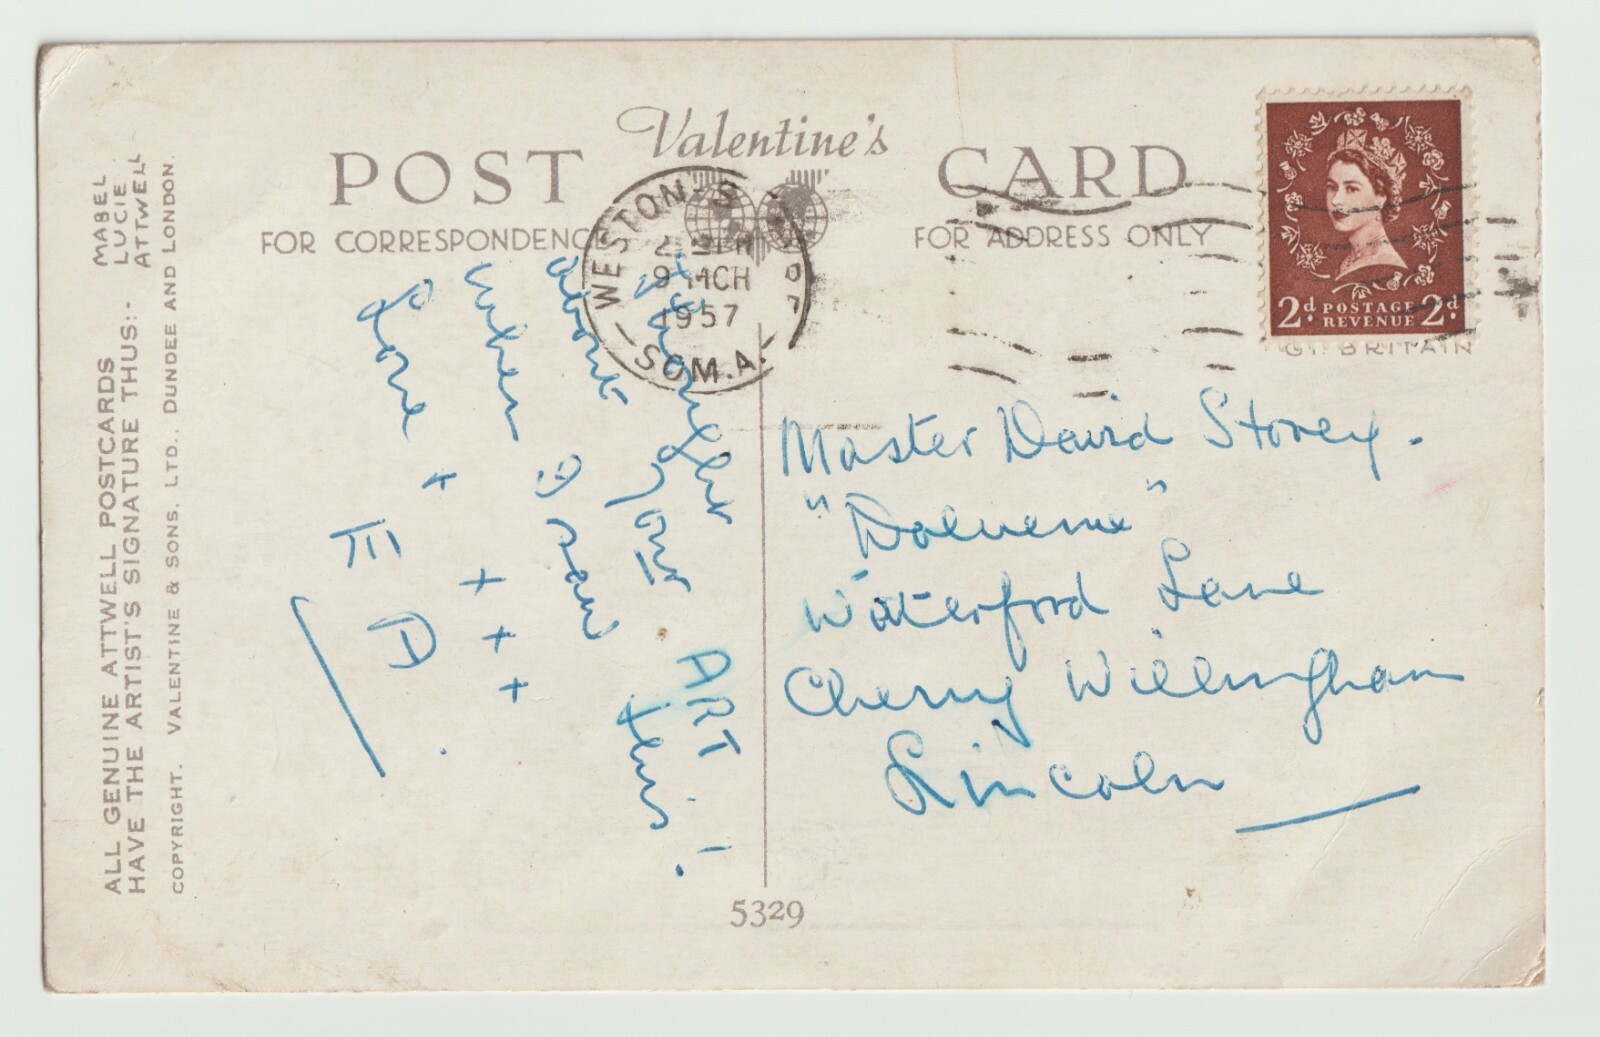 POST Valentine's CARD
FOR CORRESPONDENCE
FOR ADDRESS ONLY
WESTON-S
9 MCH
1957
SOM.A.
2d. POSTAGE REVENUE 2d.
GT. BRITAIN
about your ART
when I saw this!
Love + + + +
Master David Storey.
Waterford Lane
Cherry Willingham
Lincoln
5329
ALL GENUINE ATTWELL POSTCARDS
HAVE THE ARTIST'S SIGNATURE THUS:-
MABEL
LUCIE
ATTWELL
COPYRIGHT. VALENTINE & SONS, LTD., DUNDEE AND LONDON.